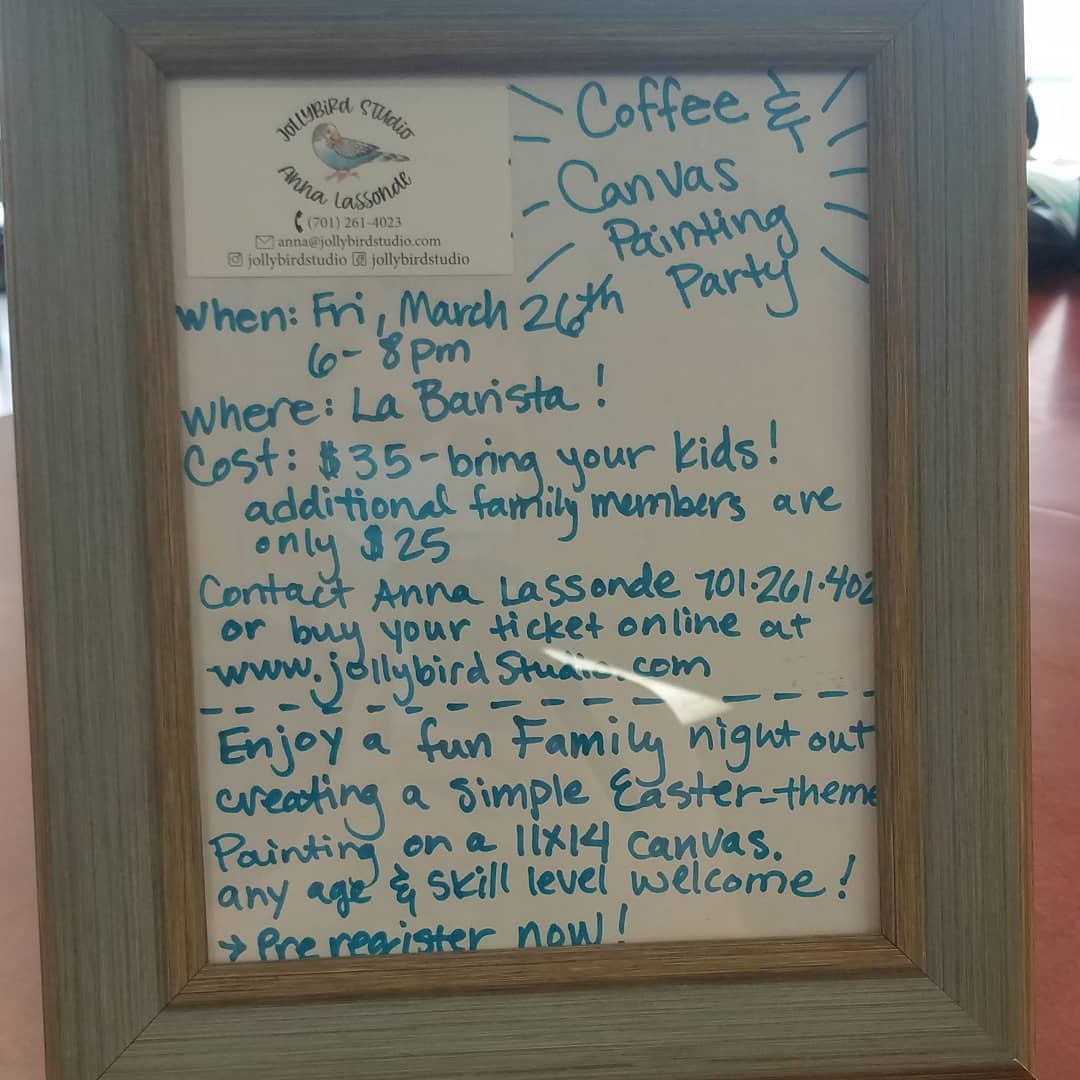 JOLLYBIRD STUDIO
Anna Lassonde
(701) 261-4023
anna@jollybirdstudio.com
jollybirdstudio jollybirdstudio
Coffee &
Canvas
Painting
Party
When: Fri, March 26th
6-8pm
Where: La Barista!
Cost: $35-bring your kids!
additional family members are
only $25
Contact Anna Lassonde 701·261·402
or buy your ticket online at
www.jollybirdStudio.com
Enjoy a fun Family night out
creating a simple Easter-theme
Painting on a 11x14 canvas.
any age & skill level welcome!
→ Pre register now!